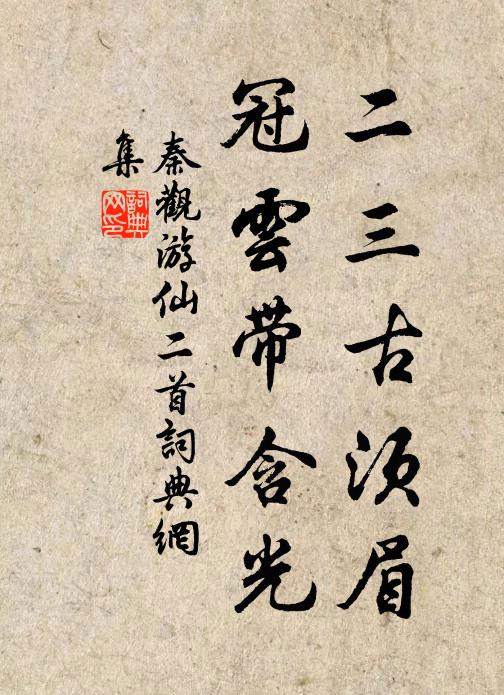 二三古须眉
冠雲帶含光
秦觀游仙二首詞典網
集
詞典
网印